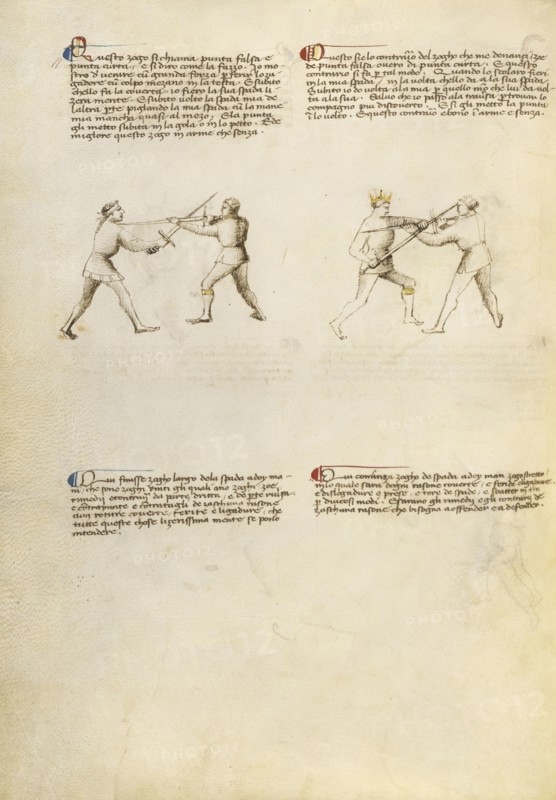 Questo zogo si chiama punta falsa e
punta curta, e si diro come la fazzo. Io mo
stro d'venire cum granda forza p ferir lo zu
gadore cum colpo mezano in la testa. E subito
chello fa la coverta io fiero la sua spada li
zera mente. E subito volto la spada mia de
laltra pte piglando la mia spada cum la mane
mia mancha quasi al mezo. E la punta
gli metto subita in la gola o in lo petto. Ede
miglore questo zogo in arme che senza.
Questo si e lo contrario del zogho che me denanci zoe
de punta falsa overo di punta curta. E questo
contrario si fa p tal modo. Quando lo scolaro fieri
in la mia spada, in la volta chello da a la sua spada,
Subito io do volta ala mia p quello modo che lui da vol
ta ala sua. Salvo che io passo ala traversa p trovar lo
compagno piu discoverto. E si gli metto la punta
in lo volto. E questo contrario e bono in arme e senza.
Qui finisse zogho largo dela spada a doy ma
ni, che sono zoghi uniti gli quali ano zoghi, zoe
rimedii e contrarii da parte dritta, e de parte riversa
e contrapunte e contratagli de zaschuna rasone
cum roture coverte, ferire e ligadure, che
tutte queste chose lizerissima mente se pono
intendere.
Qui cominza zogho de spada a doy man zogo stretto
in lo quale sara d'ogni rasone coverte, e feride e ligadure
e dislogadure e prese, e tore de spade, e sbatter in terra
p diversi modi. E sarano gli rimedii e gli contrarii de
zaschuna rasone che bisogna a offender e a defender.
PHOTO12